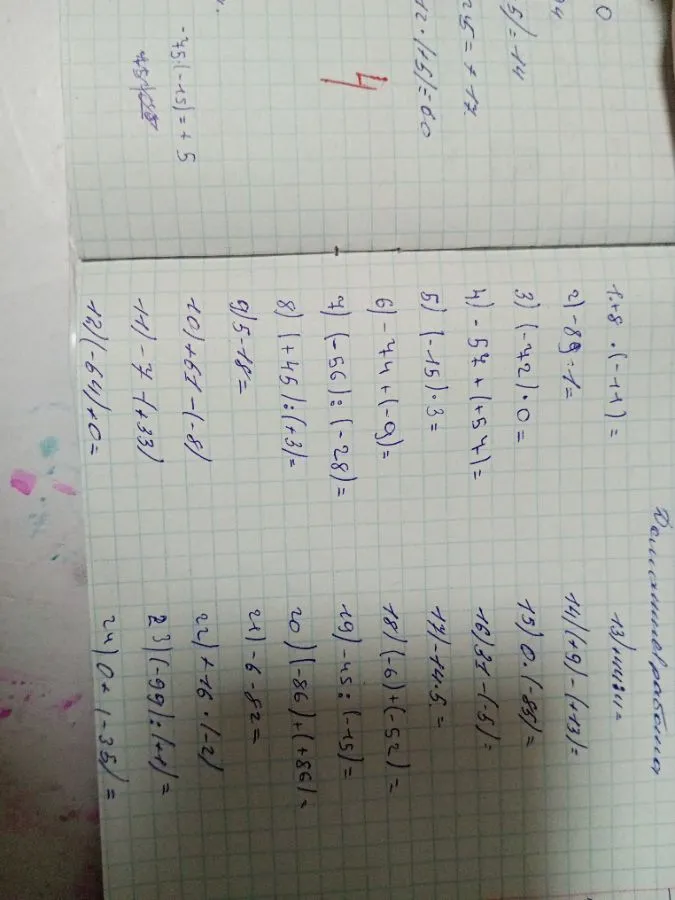 0
94
5) = 14
245 = + 17.
12 · (+5) = 60
4
-75:(-15) = + 5
Домашняя работа
1. +8 · (-11) =
2) - 89 - 1 =
3) (-72) · 0 =
4) - 57 + (+57) =
5) (-15) · 3 =
6) - 74 + (-9) =
7) (-56) : (-28) =
8) (+45) : (+3) =
9) 5 - 18 =
10) +67 - (-8)
11) - 7 - (+33)
12) (-64) + 0 =
13)
14) (+9) - (+13) =
15) 0 · (-85) =
16) 31 - (-5) =
17) - 14 · 5 =
18) (-6) + (-52) =
19) - 45 : (-15) =
20) (-86) + (+86) =
21) - 6 - 52 =
22) + 16 · (-2)
23) (-99) : (+1) =
24) 0 + (-35) =